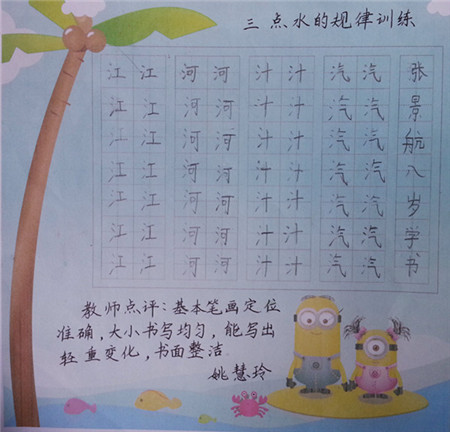 三点水的规律训练
江江 河河 汁汁 汽汽
江江 河河 汁汁 汽汽
江江 河河 汁汁 汽汽
江江 河河 汁汁 汽汽
江江 河河 汁汁 汽汽
江江 河河 汁汁 汽汽
江江 河河 汁汁 汽汽
张景航八岁学书
教师点评:基本笔画定位
准确,大小书写均匀,能写出
轻重变化,书面整洁。
姚慧玲